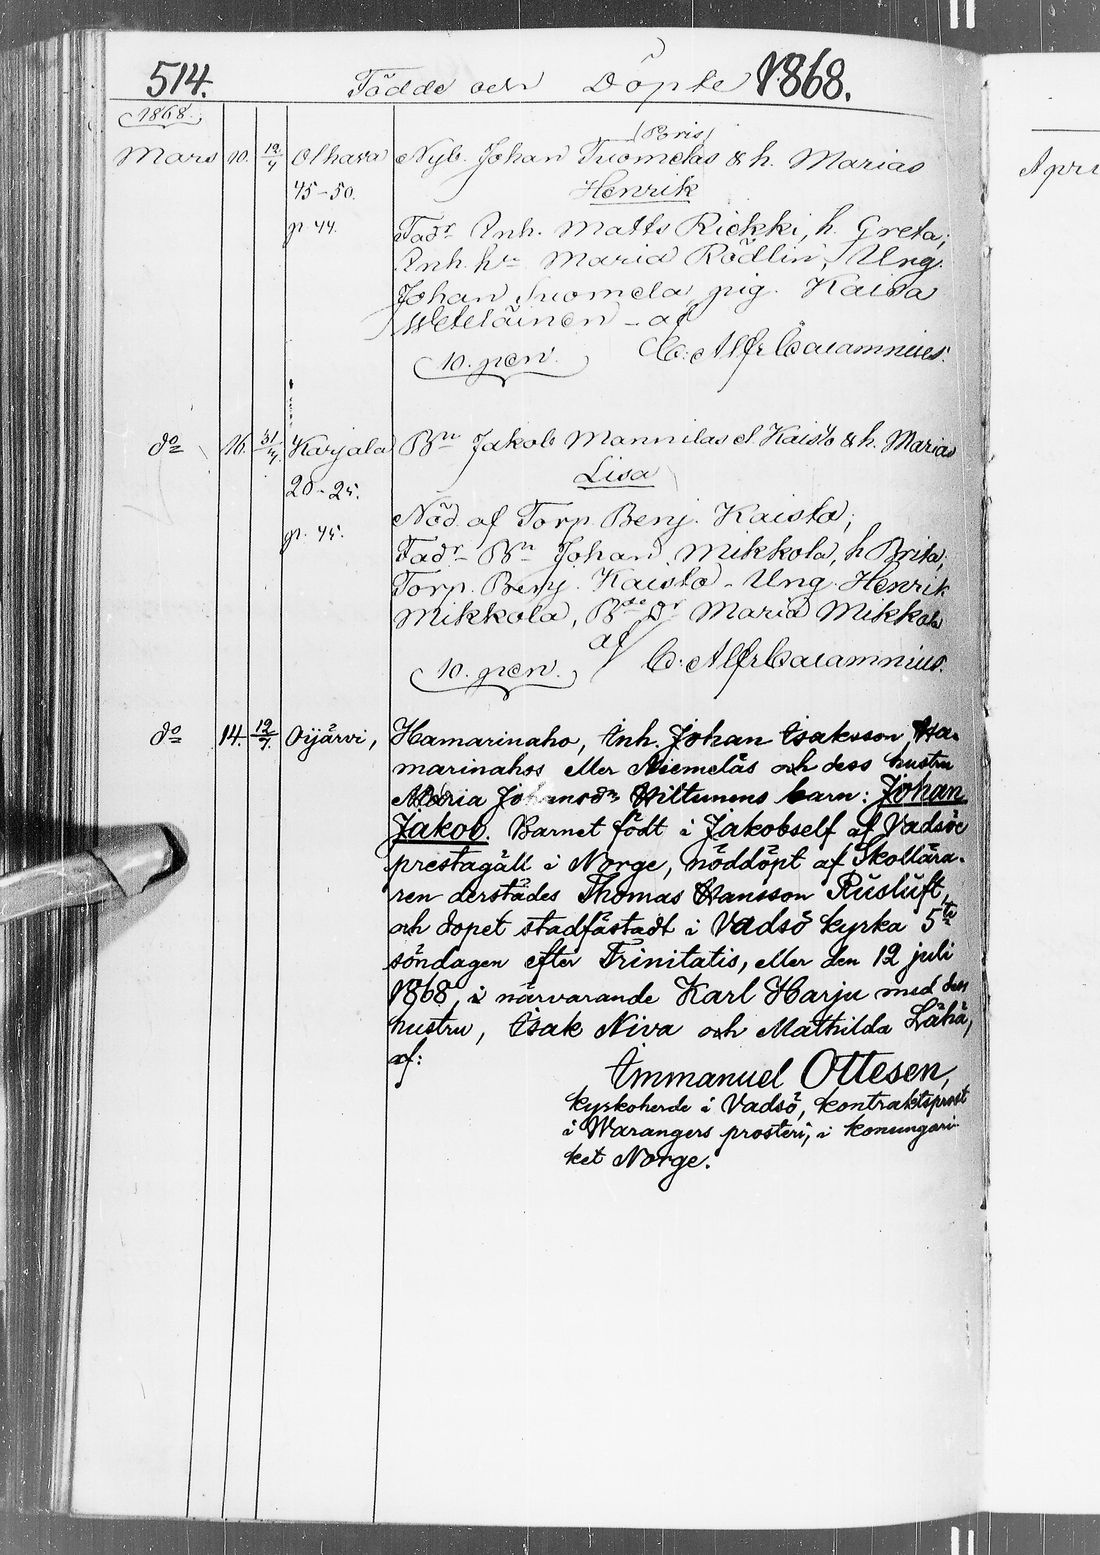 514. Födde och Döpte 1868.
1868.
Mars 10. 12/4 Olhava Nyb. Johan Tuomelas & h. Marias
45-50. Henrik
p 44. Fadr Inh. Matts Riekki, h. Greta;
Inh. hu Maria Rödlin, Ung.
Johan Tuomela pig. Kaisa
- af
10. pen. C: Alfr Calamnius.
do 16. Karjala Bn Jakob Mannilas l. Kaisto & h. Marias
20-25. Lisa
p. 45. Nöd. af Torp. Benj. Kaisto;
Fadr Bn Johan Mikkola, h Brita;
Torp. Benj. Kaisto - Ung. Henrik
Mikkola, Bde Dr Maria Mikkola
af
10. pen. C: Alfr Calamnius.
do 14. 12/7. Oijärvi, Hamarinaho, Inh. Johan Isaksson Ha-
marinahos eller Niemeläs och dess hustru
Maria Johansdr Hiltunens barn: Johan
Jakob. Barnet födt i Jakobself af Vadsöe
prestagäll i Norge, nöddöpt af Skollära-
ren derstädes Thomas Hansson Rusluft,
och dopet stadfästadt i Vadsö kyrka 5te
söndagen efter Trinitatis, eller den 12 juli
1868, i närvarande Karl Harju med dess
hustru, Isak Niva och Mathilda Lähä,
af:
Immanuel Ottesen,
kyrkoherde i Vadsö, kontraktsprost
i Warangers prosteri, i konungari-
ket Norge.
Apri